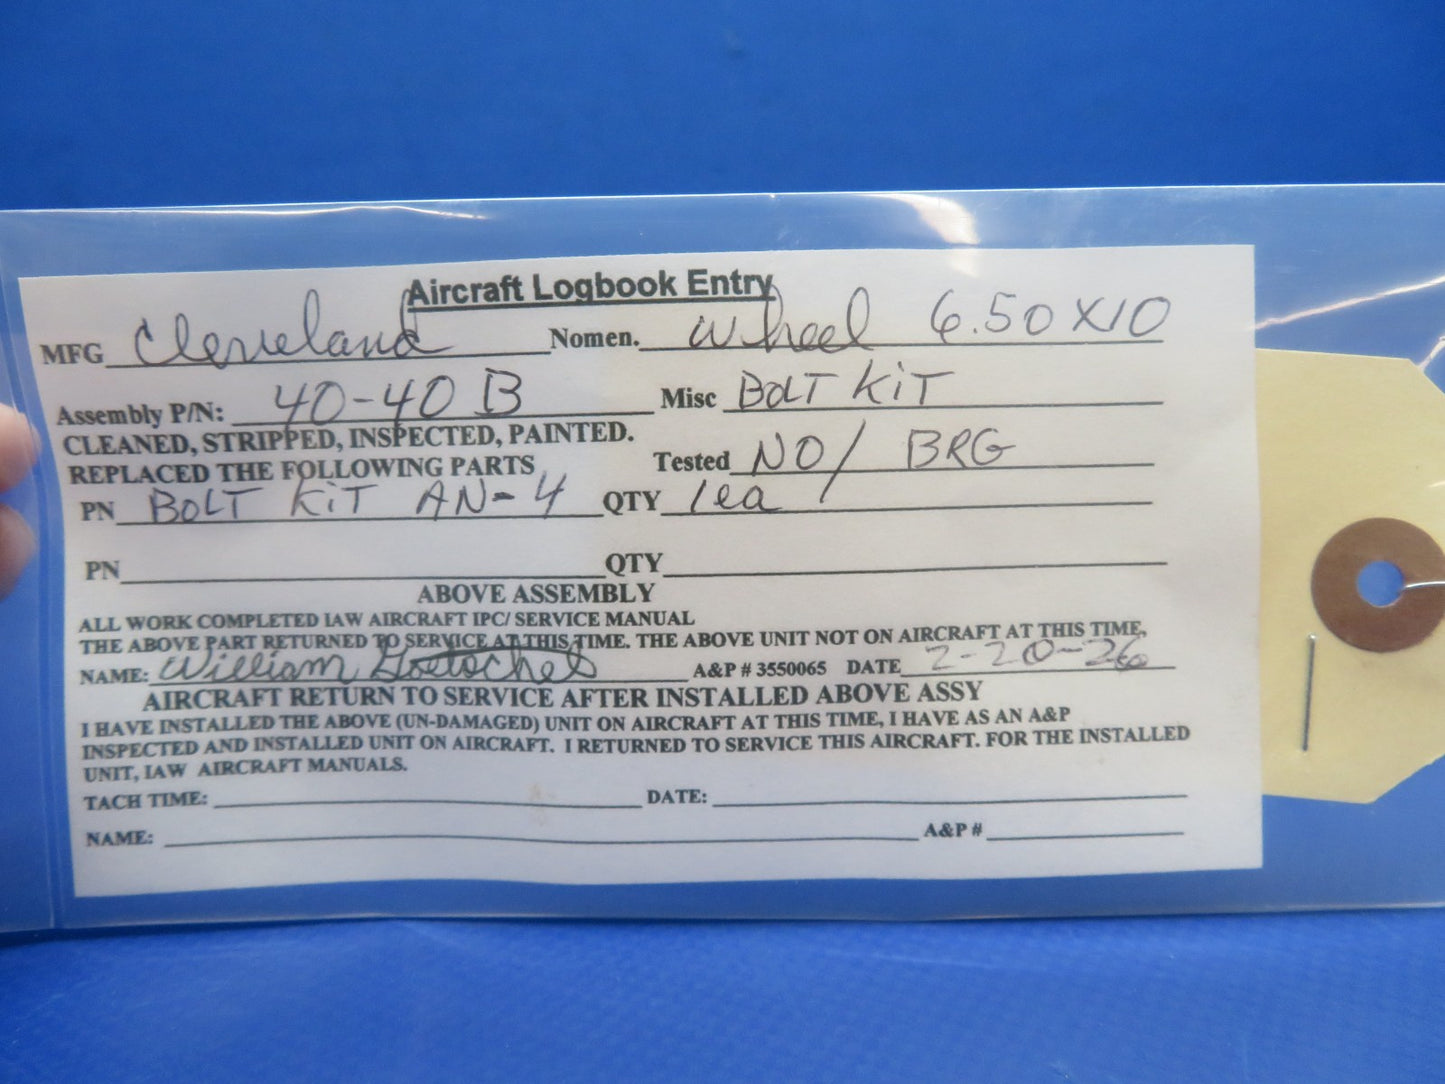 Aircraft Logbook Entry
MFG Cleveland Nomen. Wheel 6.50 X10
Assembly P/N: 40-40 B Misc BOLT KiT
CLEANED, STRIPPED, INSPECTED, PAINTED.
REPLACED THE FOLLOWING PARTS Tested NO/ BRG
PN BOLT KiT AN-4 QTY 1ea
PN QTY
ABOVE ASSEMBLY
ALL WORK COMPLETED IAW AIRCRAFT IPC/ SERVICE MANUAL
THE ABOVE PART RETURNED TO SERVICE AT THIS TIME. THE ABOVE UNIT NOT ON AIRCRAFT AT THIS TIME,
NAME: William A&P # 3550065 DATE 2-20-26
AIRCRAFT RETURN TO SERVICE AFTER INSTALLED ABOVE ASSY
I HAVE INSTALLED THE ABOVE (UN-DAMAGED) UNIT ON AIRCRAFT AT THIS TIME, I HAVE AS AN A&P
INSPECTED AND INSTALLED UNIT ON AIRCRAFT. I RETURNED TO SERVICE THIS AIRCRAFT. FOR THE INSTALLED
UNIT, IAW AIRCRAFT MANUALS.
TACH TIME: DATE:
NAME: A&P #